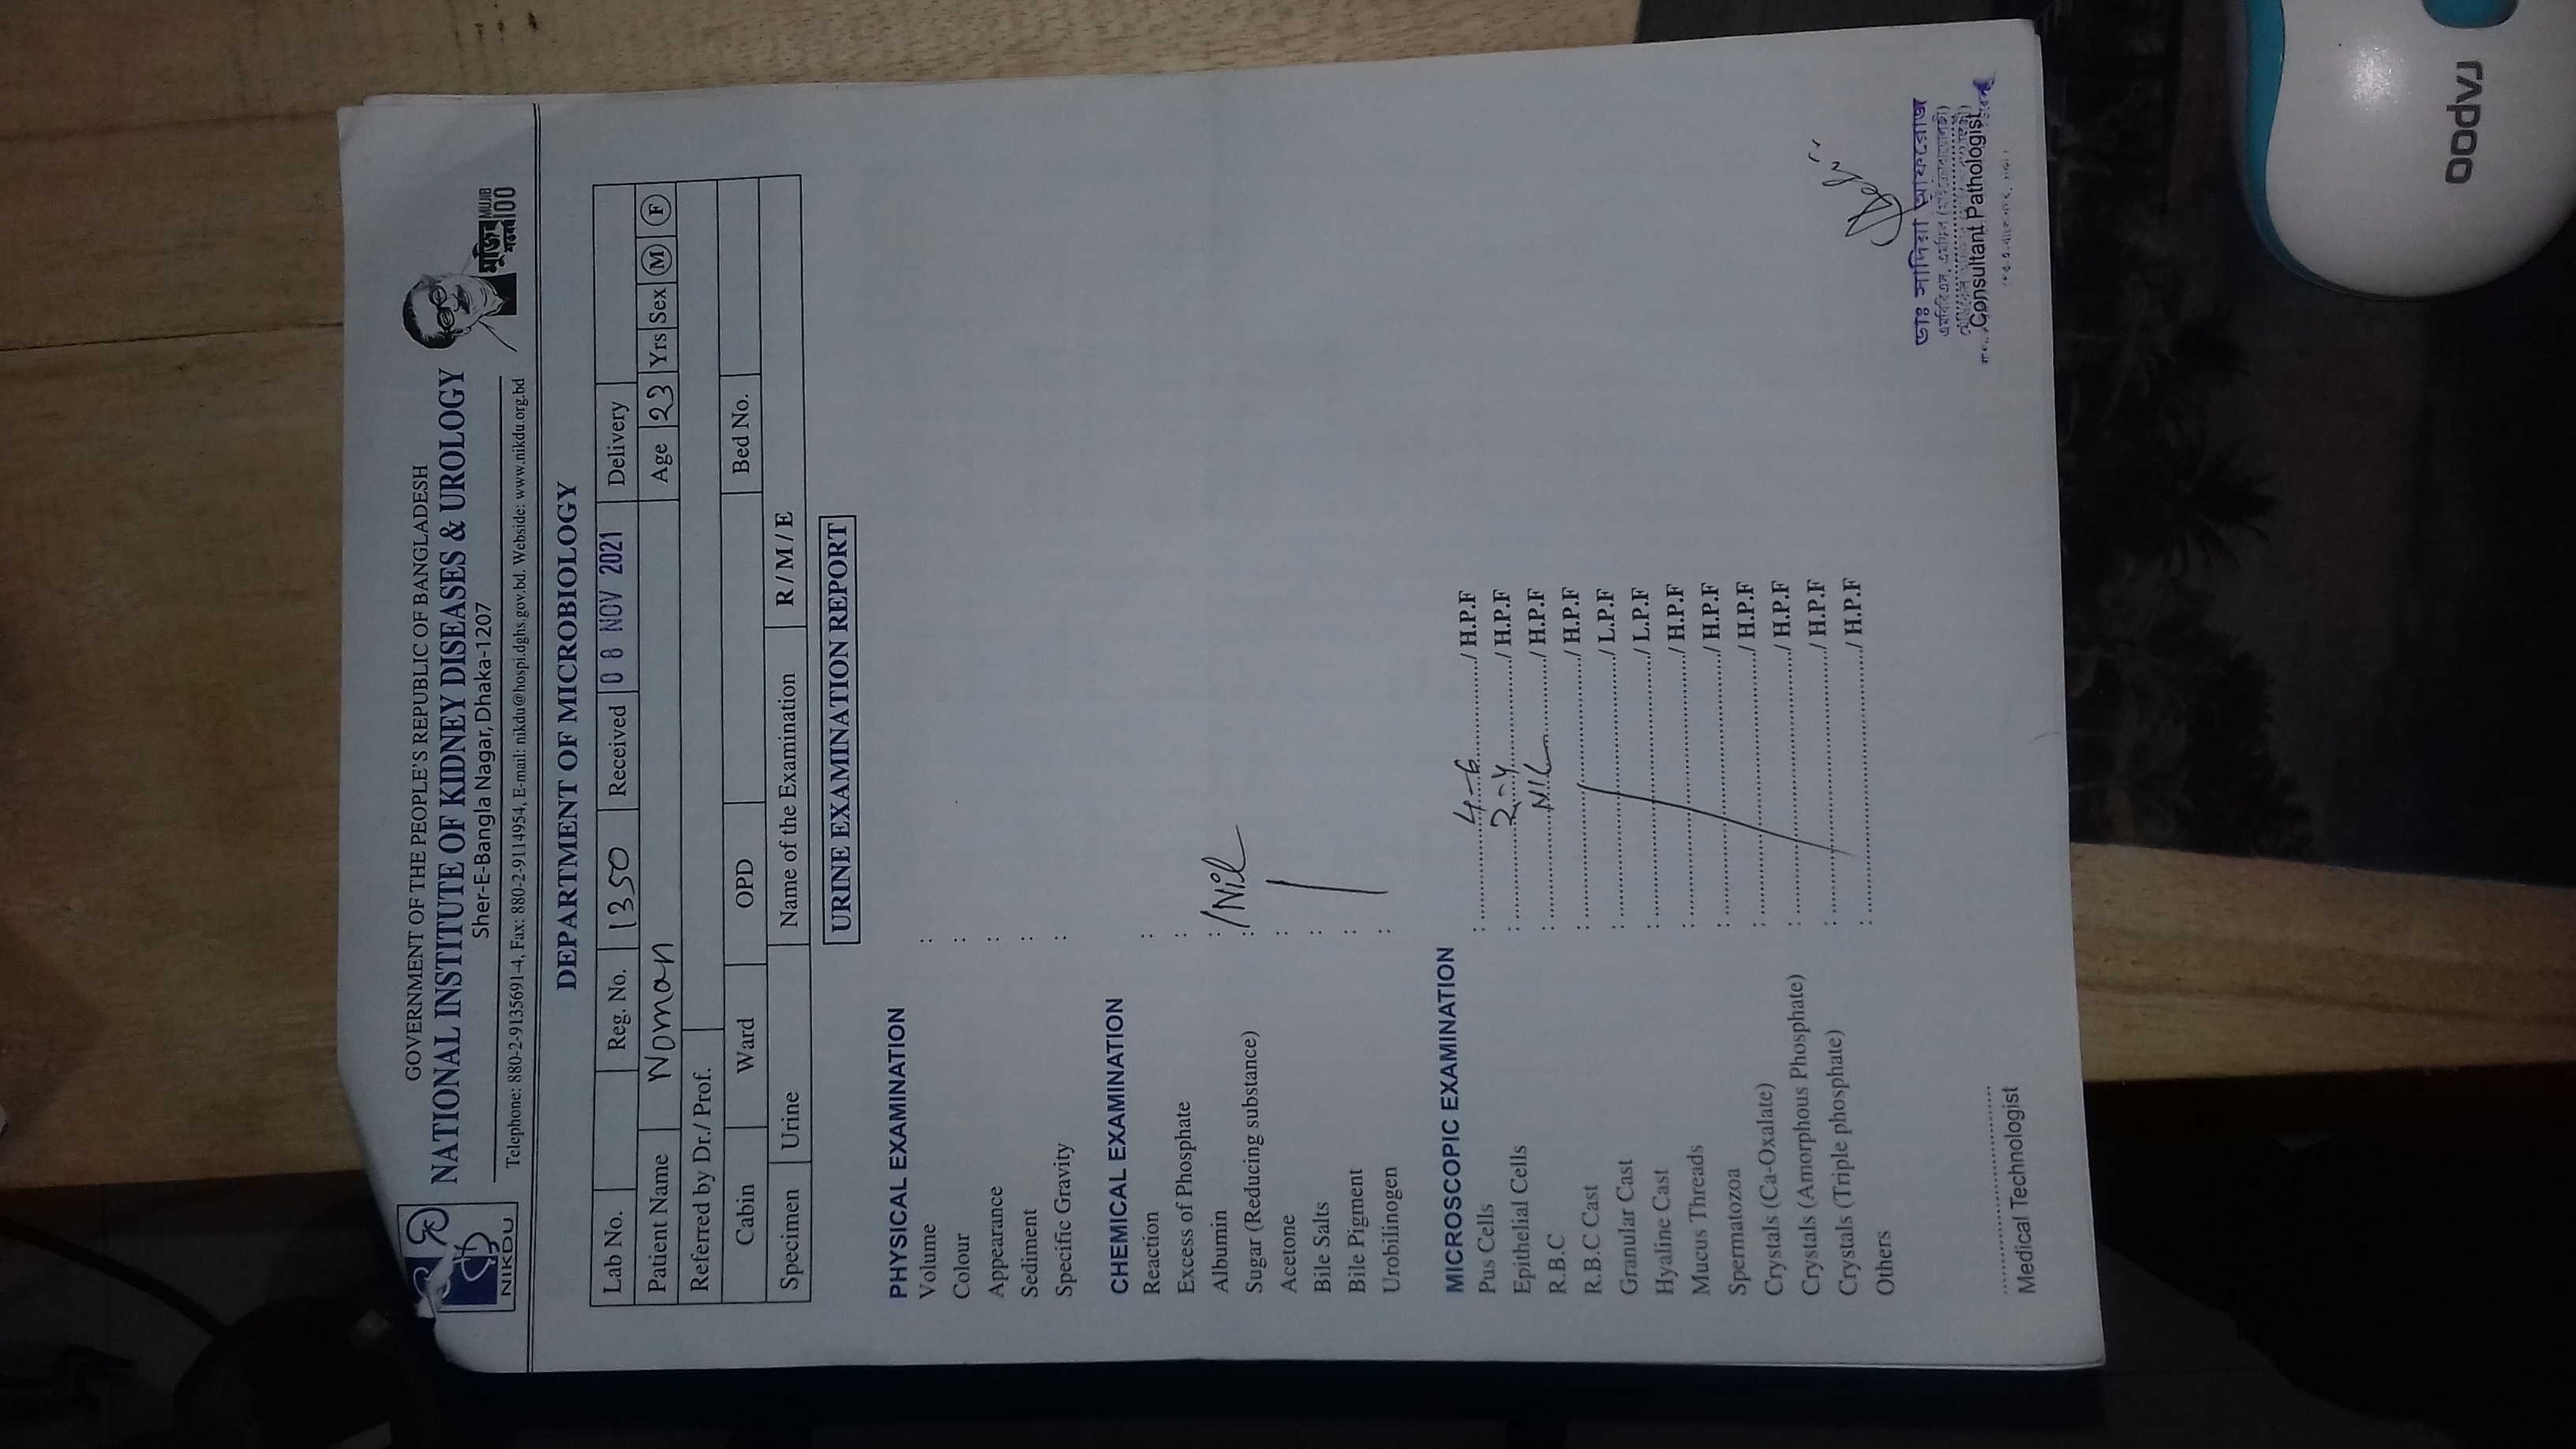 GOVERNMENT OF THE PEOPLE'S REPUBLIC OF BANGLADESH
NATIONAL INSTITUTE OF KIDNEY DISEASES & UROLOGY
Sher-E-Bangla Nagar, Dhaka-1207
Telephone: 880-2-9135691-4, Fax: 880-2-9114954, E-mail: nikdu@hospi.dghs.gov.bd. Webside: www.nikdu.org.bd
NIKDU
মুজিব MUJIB
শতবর্ষ 100
DEPARTMENT OF MICROBIOLOGY
Lab No. Reg. No. 1350 Received 08 NOV 2021 Delivery
Patient Name Noman Age 23 Yrs Sex M F
Referred by Dr./ Prof.
Cabin Ward OPD Bed No.
Specimen Urine Name of the Examination R / M / E
URINE EXAMINATION REPORT
PHYSICAL EXAMINATION
Volume :
Colour :
Appearance :
Sediment :
Specific Gravity :
CHEMICAL EXAMINATION
Reaction :
Excess of Phosphate :
Albumin :
Sugar (Reducing substance) : Nil
Acetone :
Bile Salts :
Bile Pigment :
Urobilinogen :
MICROSCOPIC EXAMINATION
Pus Cells : 4-6 / H.P.F
Epithelial Cells : 2-4 / H.P.F
R.B.C : NIL / H.P.F
R.B.C Cast : / H.P.F
Granular Cast : / L.P.F
Hyaline Cast : / L.P.F
Mucus Threads : / H.P.F
Spermatozoa : / H.P.F
Crystals (Ca-Oxalate) : / H.P.F
Crystals (Amorphous Phosphate) : / H.P.F
Crystals (Triple phosphate) : / H.P.F
Others : / H.P.F
ডাঃ সাদিয়া আফরোজ
এমবিবিএস, এমফিল (মাইক্রোবায়োলজী)
Consultant Pathologist
Medical Technologist
rapoo